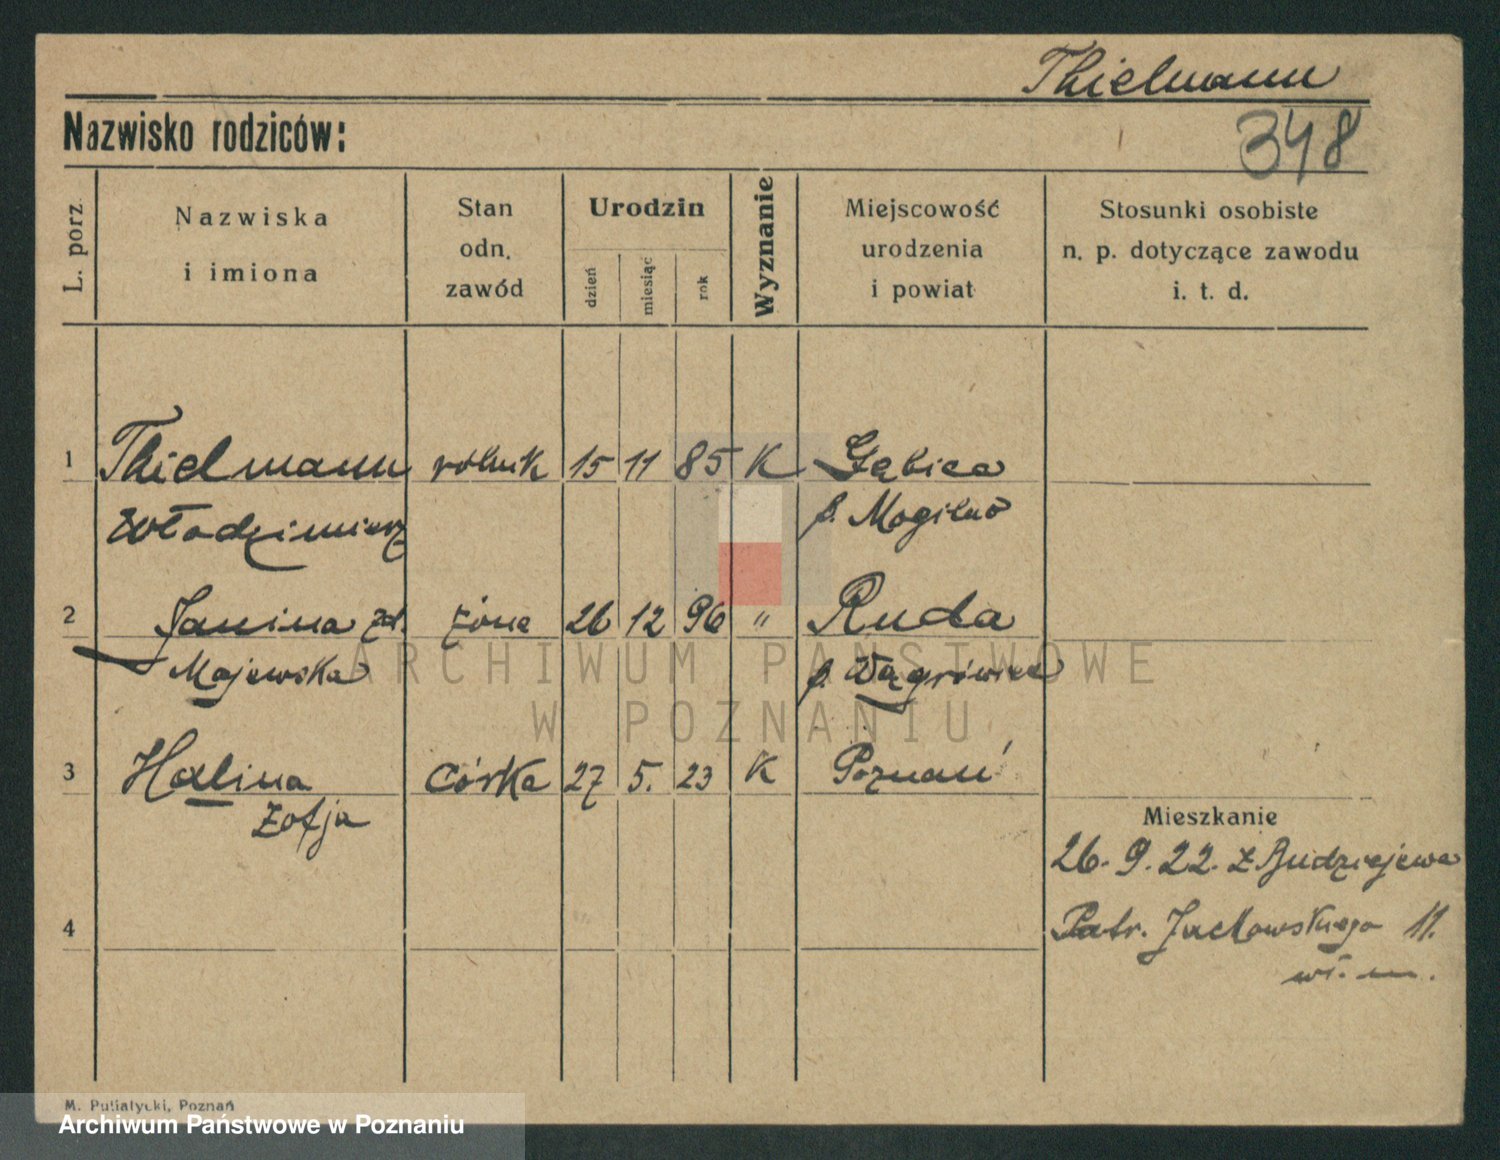 Thielmann
Nazwisko rodziców:
348
L. porz.
Nazwiska
i imiona
Stan
odn.
zawód
Urodzin
dzień
miesiąc
rok
Wyznanie
Miejscowość
urodzenia
i powiat
Stosunki osobiste
n. p. dotyczące zawodu
i. t. d.
1 Thielmann rolnik 15 11 85 K Gębice
Włodzimierz p. Mogilno
2 Janina zd. żona 26 12 96 " Ruda
Majewska p. Wągrówiec
3 Halina córka 27 5. 23 K Poznań
Zofja
Mieszkanie
26. 9. 22. z Budziejewa
4
Patr. Jackowskiego 11.
wł. m.
ARCHIWUM PAŃSTWOWE
W POZNANIU
M. Putiatycki, Poznań
Archiwum Państwowe w Poznaniu